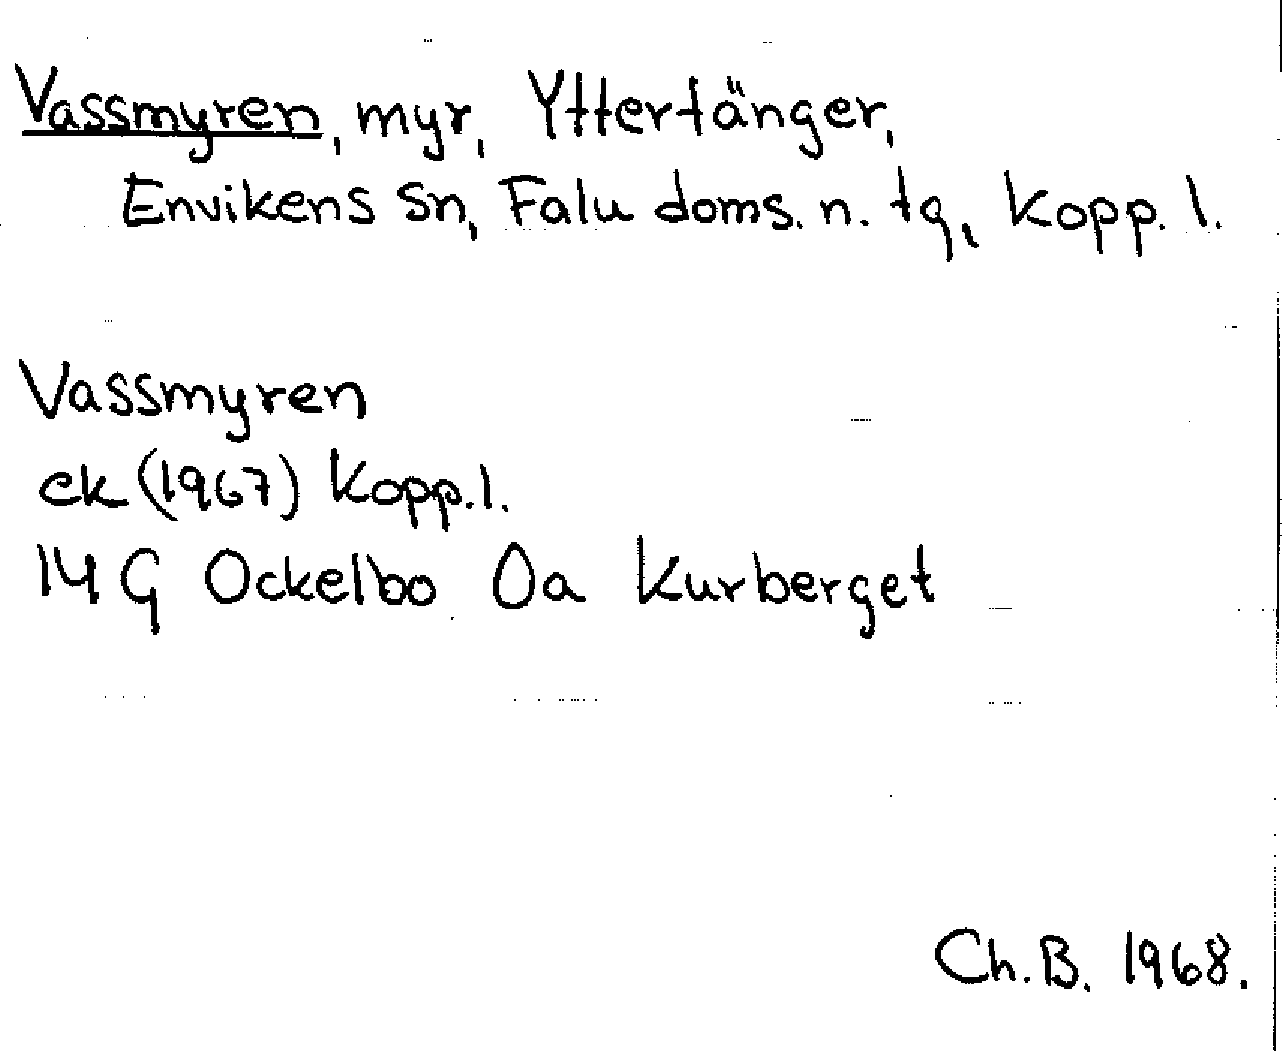 Vassmyren, myr, Yttertänger,
Envikens sn, Falu doms. n. tg, Kopp. l.
Vassmyren
ek (1967) Kopp. l.
14 G Ockelbo 0a Kurberget
Ch. B. 1968.